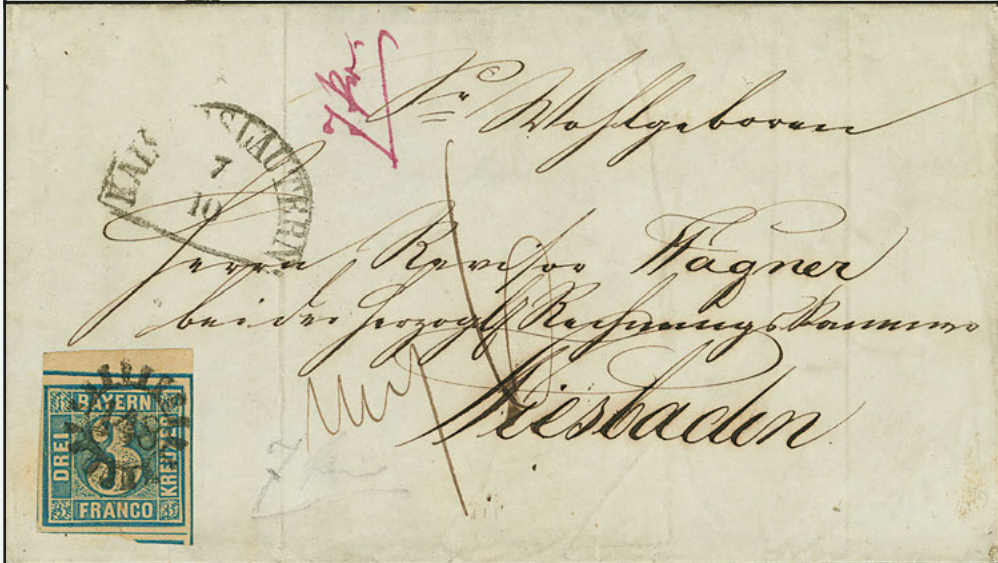 Sr Wohlgeboren
KAISERSLAUTERN
7
10
Herrn Revisor Wagner
bei der herzogl Rechnungskammer
Wiesbaden
BAYERN
DREI
3
KREUZER
FRANCO